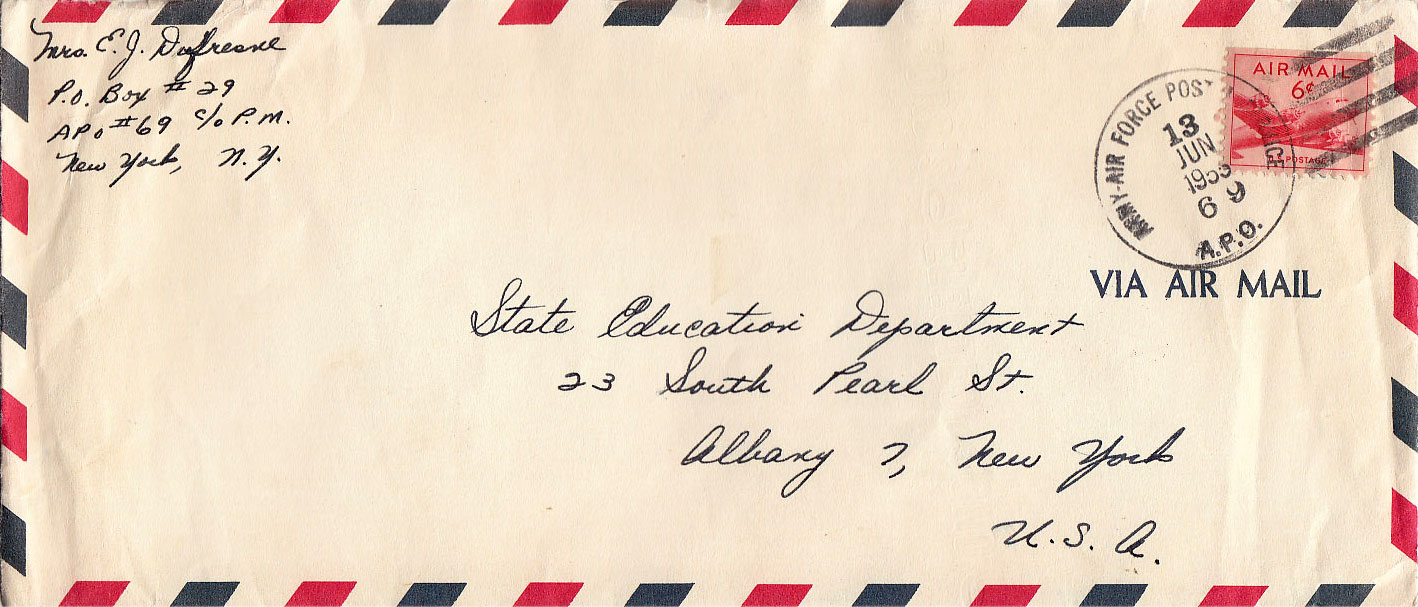 Mrs. E. J. Dufresne
P.O. Box # 29
APO #69 c/o P.M.
New York, N.Y.
AIR MAIL
6¢
U.S. POSTAGE
ARMY-AIR FORCE POSTAL SERVICE
13
JUN
1953
69
A.P.O.
VIA AIR MAIL
State Education Department
23 South Pearl St.
Albany 7, New York
U.S.A.